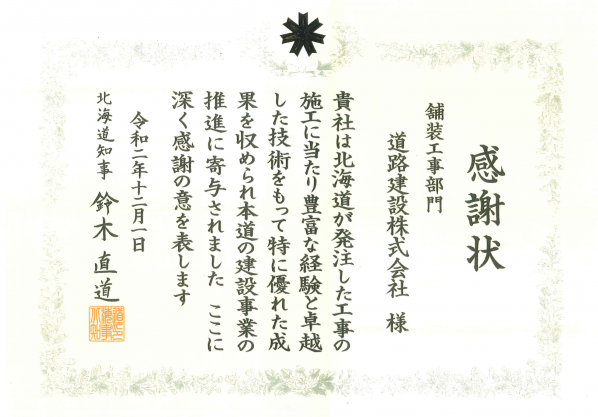 感謝状
舗装工事部門
道路建設株式会社 様
貴社は北海道が発注した工事の
施工に当たり豊富な経験と卓越
した技術をもって特に優れた成
果を収められ本道の建設事業の
推進に寄与されました ここに
深く感謝の意を表します
令和二年十二月一日
北海道知事 鈴木直道